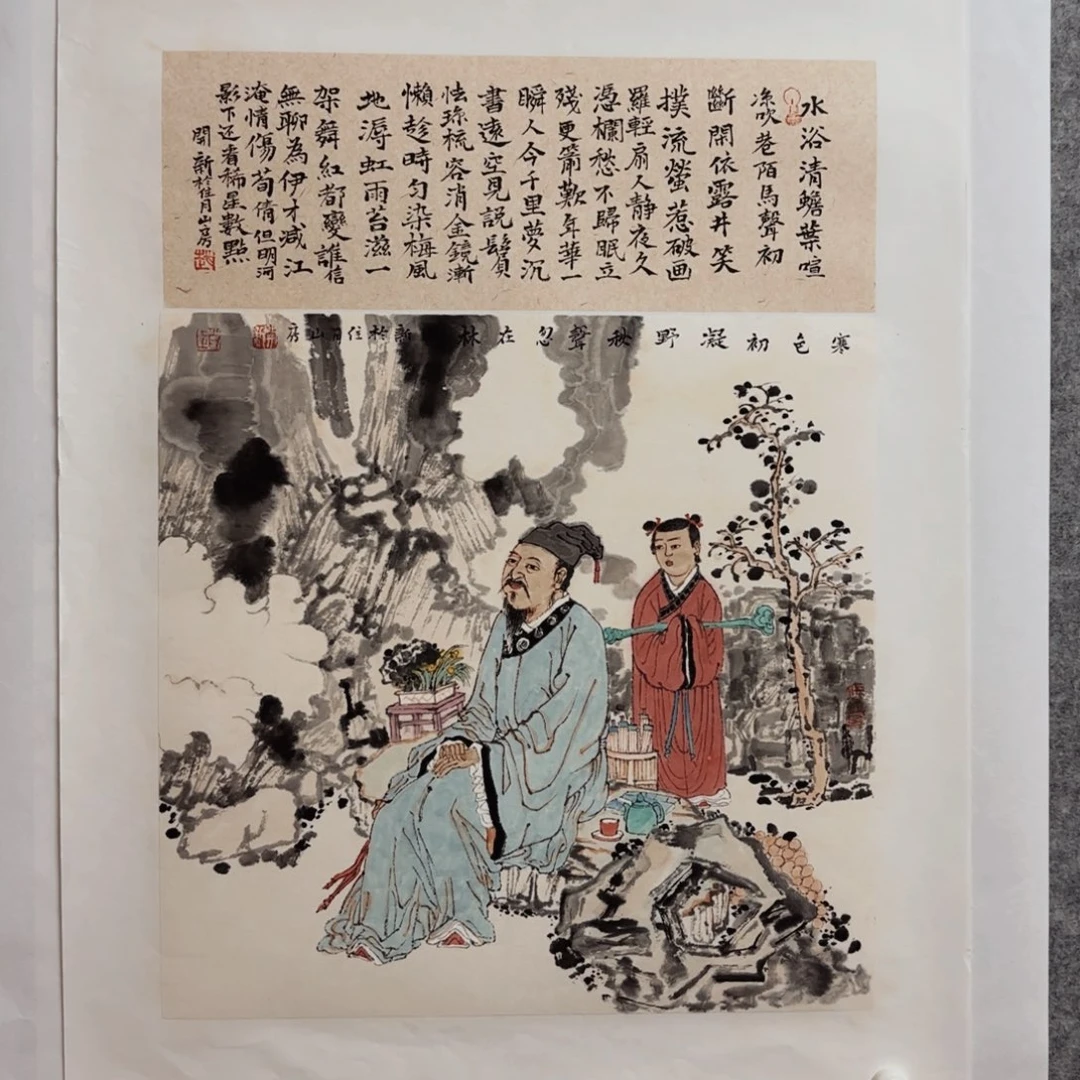 水浴清蟾葉喧
凉吹巷陌馬聲初
斷閑依露井笑
撲流螢惹破画
羅輕扇人靜夜久
憑欄愁不歸眠立
殘更箭歎年華一
瞬人今千里夢沉
書遠空見說鬢
怯瓊梳容消金鏡漸
懶趁時勻染梅風
地溽虹雨苔滋一
架舞紅都變誰信
無聊為伊才減江
淹情傷荀倩但明河
影下还看稀星數點
開新於住月山房
寒色初凝野秋聲忽在林新於住月山房